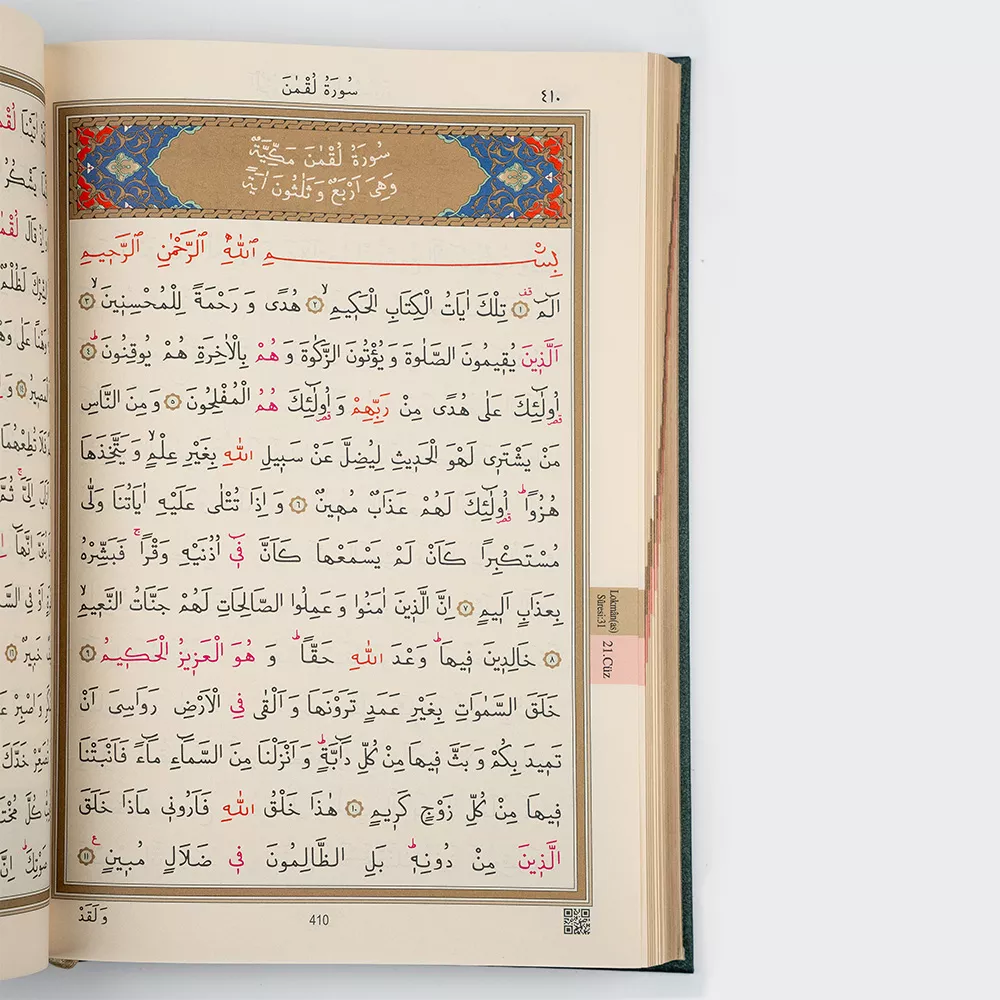 سُورَةُ لُقْمٰنَ
٤١٠
سُورَةُ لُقْمٰنَ مَكِّيَّةٌ
وَهِيَ اَرْبَعٌ وَثَلٰثُونَ اٰيَةً
بِسْمِ اللّٰهِ الرَّحْمٰنِ الرَّحٖيمِ
الٓمٓ ﴿١﴾ تِلْكَ اٰيَاتُ الْكِتَابِ الْحَكٖيمِ ﴿٢﴾ هُدًى وَرَحْمَةً لِلْمُحْسِنٖينَ ﴿٣﴾
اَلَّذٖينَ يُقٖيمُونَ الصَّلٰوةَ وَيُؤْتُونَ الزَّكٰوةَ وَهُمْ بِالْاٰخِرَةِ هُمْ يُوقِنُونَ ﴿٤﴾
اُولٰٓئِكَ عَلٰى هُدًى مِنْ رَبِّهِمْ وَاُولٰٓئِكَ هُمُ الْمُفْلِحُونَ ﴿٥﴾ وَمِنَ النَّاسِ
مَنْ يَشْتَرٖى لَهْوَ الْحَدٖيثِ لِيُضِلَّ عَنْ سَبٖيلِ اللّٰهِ بِغَيْرِ عِلْمٍ وَيَتَّخِذَهَا
هُزُوًا اُولٰٓئِكَ لَهُمْ عَذَابٌ مُهٖينٌ ﴿٦﴾ وَاِذَا تُتْلٰى عَلَيْهِ اٰيَاتُنَا وَلّٰى
مُسْتَكْبِرًا كَاَنْ لَمْ يَسْمَعْهَا كَاَنَّ فٖٓى اُذُنَيْهِ وَقْرًا فَبَشِّرْهُ
بِعَذَابٍ اَلٖيمٍ ﴿٧﴾ اِنَّ الَّذٖينَ اٰمَنُوا وَعَمِلُوا الصَّالِحَاتِ لَهُمْ جَنَّاتُ النَّعٖيمِ
﴿٨﴾ خَالِدٖينَ فٖيهَا وَعْدَ اللّٰهِ حَقًّا وَهُوَ الْعَزٖيزُ الْحَكٖيمُ ﴿٩﴾
خَلَقَ السَّمٰوَاتِ بِغَيْرِ عَمَدٍ تَرَوْنَهَا وَاَلْقٰى فِى الْاَرْضِ رَوَاسِىَ اَنْ
تَمٖيدَ بِكُمْ وَبَثَّ فٖيهَا مِنْ كُلِّ دَٓابَّةٍ وَاَنْزَلْنَا مِنَ السَّمَٓاءِ مَٓاءً فَاَنْبَتْنَا
فٖيهَا مِنْ كُلِّ زَوْجٍ كَرٖيمٍ ﴿١٠﴾ هٰذَا خَلْقُ اللّٰهِ فَاَرُونٖى مَاذَا خَلَقَ
الَّذٖينَ مِنْ دُونِهٖ بَلِ الظَّالِمُونَ فٖى ضَلَالٍ مُبٖينٍ ﴿١١﴾
وَلَقَدْ
410
Lokmân(as)
Sûresi:31
21.Cüz